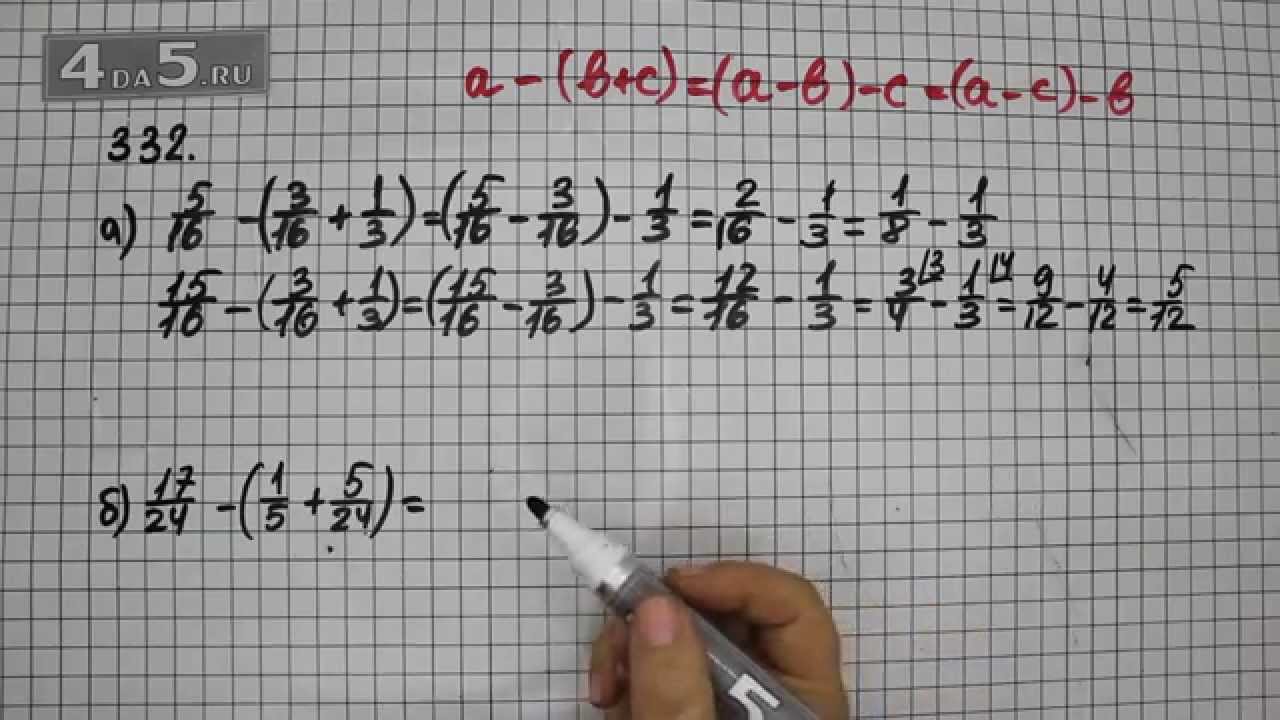 4DA5.RU
a - (в+c) = (a-в) - c = (a-c) - в
332.
а) 5/16 - (3/16 + 1/3) = (5/16 - 3/16) - 1/3 = 2/16 - 1/3 = 1/8 - 1/3
15/16 - (3/16 + 1/3) = (15/16 - 3/16) - 1/3 = 12/16 - 1/3 = 3/4 |3 - 1/3 |4 = 9/12 - 4/12 = 5/12
б) 17/24 - (1/5 + 5/24) =
5